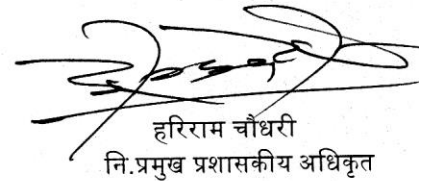 हरिराम चौधरी
नि.प्रमुख प्रशासकीय अधिकृत